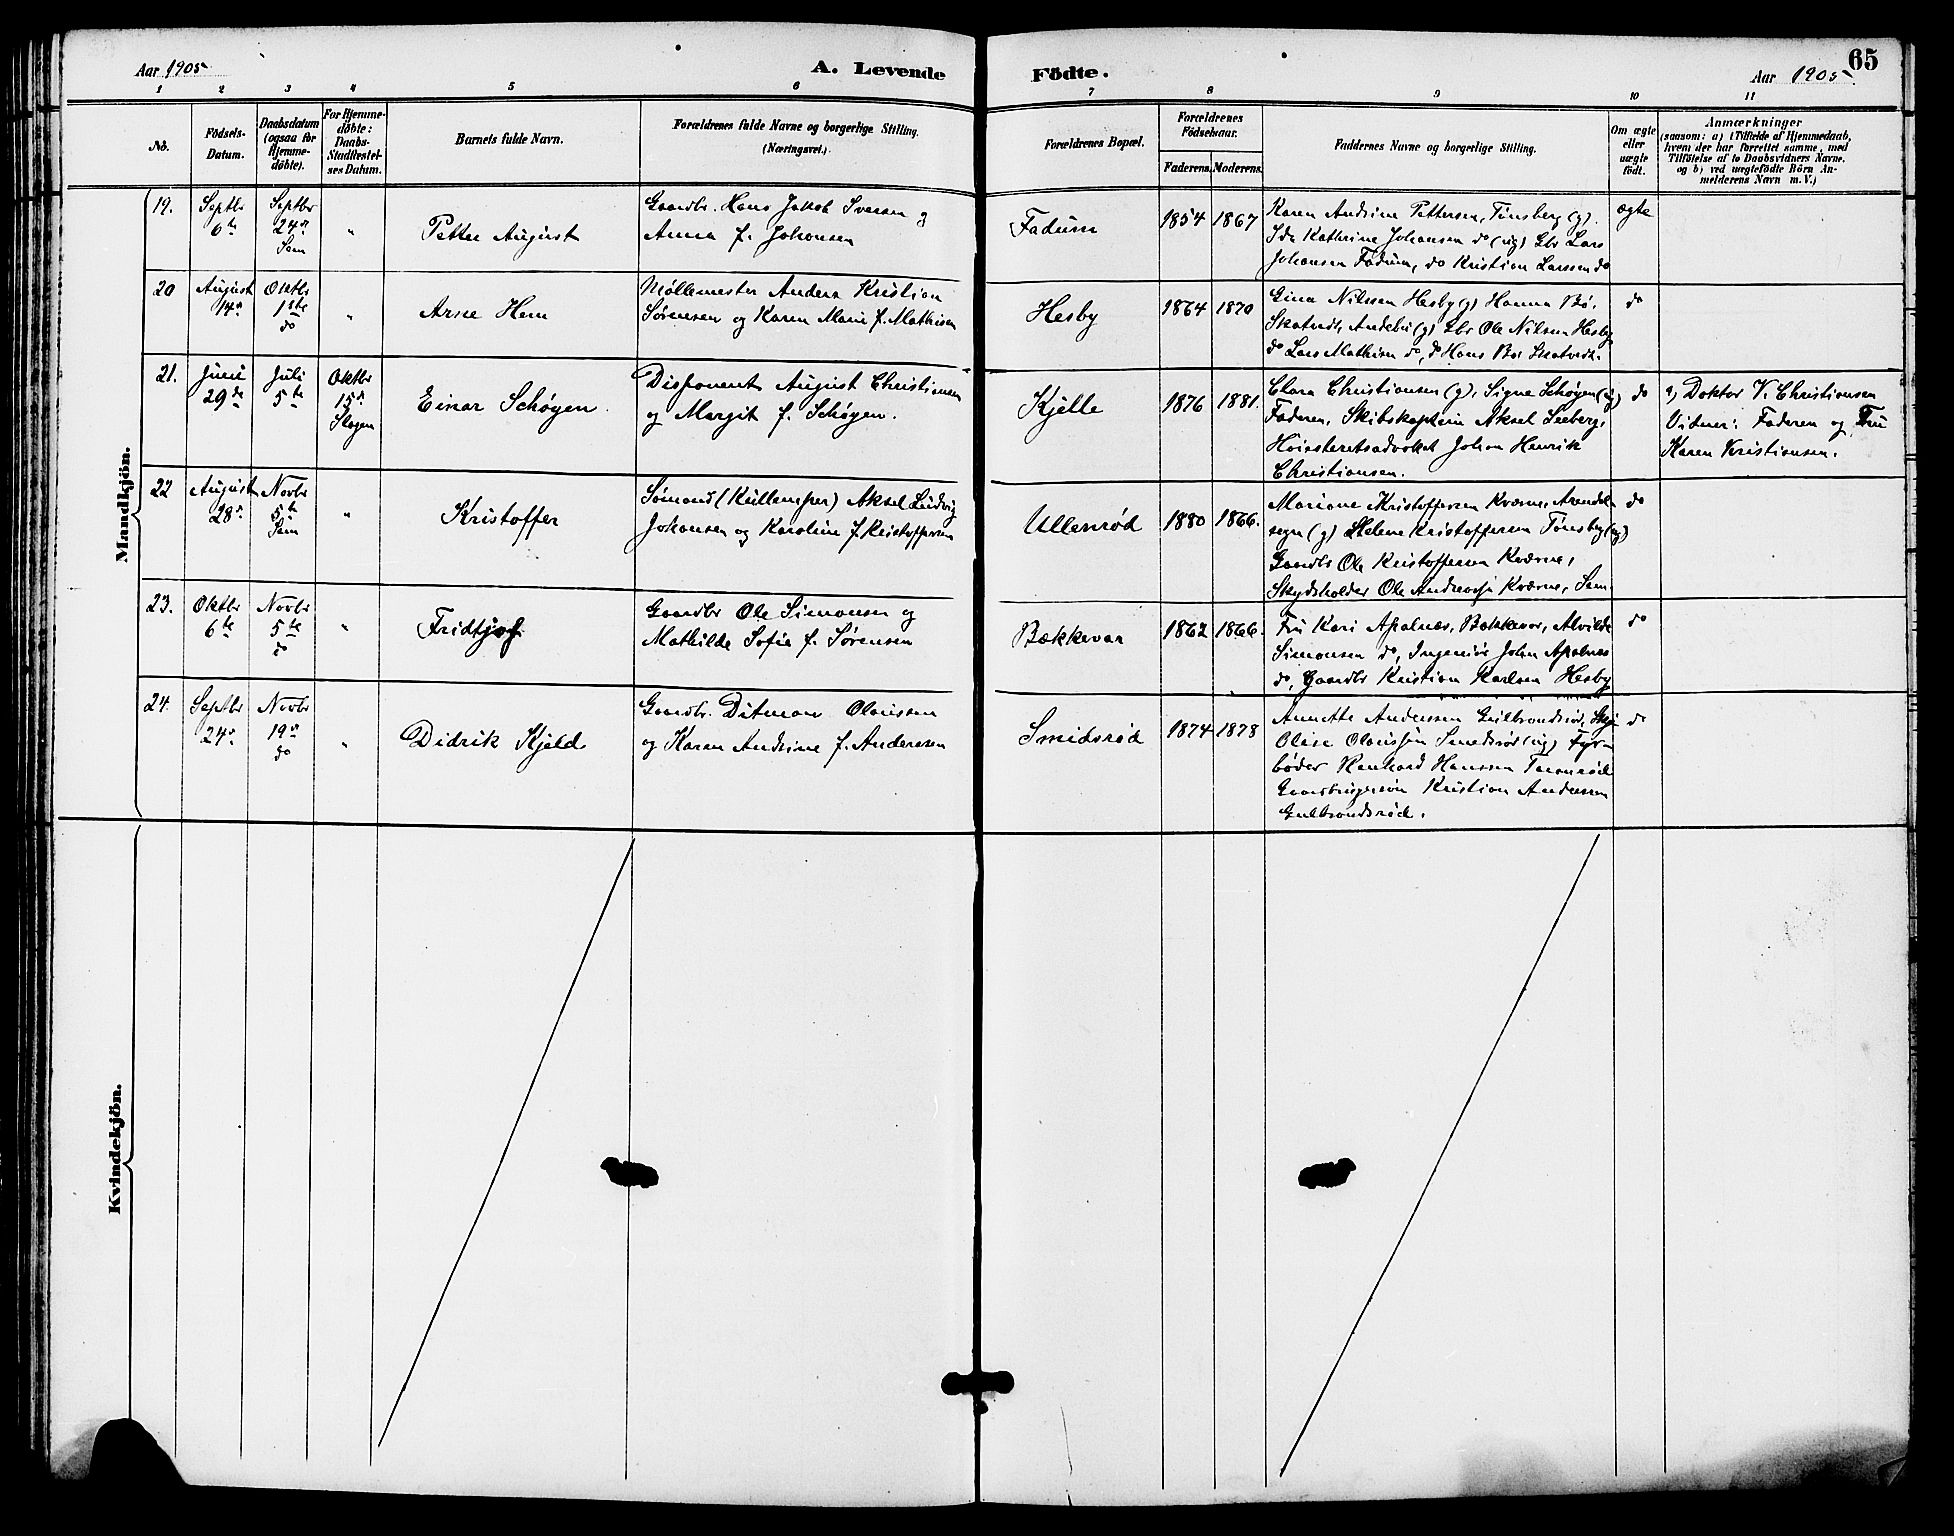 Aar 1905
A. Levende
Födte.
65
Aar 1905
1 2 3 4 5 6 7 8 9 10 11
No.
Födsels-
Datum.
Daabsdatum
(ogsaa for
Hjemme-
döbte).
For Hjemme-
döbte:
Daabs-
Stadfæstel-
ses Datum.
Barnets fulde Navn.
Forældrenes fulde Navne og borgerlige Stilling.
(Næringsvei.)
Forældrenes Bopæl.
Forældrenes
Födselsaar.
Faderens. Moderens.
Faddernes Navne og borgerlige Stilling.
Om ægte
eller
uægte
födt.
Anmærkninger
(saasom: a) i Tilfælde af Hjemmedaab,
hvem der har forrettet samme, med
Tilföielse af to Daabsvidners Navne.
og b) ved uægtefödte Börn An-
melderens Navn m. V.)
Mandkjön.
19.
Septbr
6te
Septbr
24de
Sem
"
Petter August
Gaardbr. Hans Jakob Iversen og
Anna f. Johansen
Fadum
1854 1867
Karen Andrine Pettersen, Tønsberg (g).
Ida Kathrine Johansen do (ug) Gbr Lars
Johansen Fadum, do Kristian Larssen do
ægte
20
August
14de
Oktbr
1ste
do
"
Arne Hem
Møllemester Anders Kristian
Sørensen og Karen Marie f. Mathisen
Hesby
1864 1870
Gina Nilssen Hesby (g) Hanna Bø.
Skatvedt, Andebu (g) Gbr Ole Nilsen Hesby
do Lars Mathisen do, do Hans Bø Skatvedt.
do
21.
Juni
29de
Juli
5te
Oktbr
15de
Slagen
Einar Schøyen.
Disponent August Christiansen
og Margit f. Schøyen.
Kjelle
1876 1881.
Clara Christiansen (g), Signe Schøyen (ug)
Faderen, Skibskaptein Aksel Seeberg,
Høiesteretsadvokat Johan Henrik
Christiansen.
do
a) Doktor V. Christiansen
Vidner: Faderen og Fru
Karen Kristiansen.
22
August
28de
Novbr
5te
Sem
"
Kristoffer
Sømand (Kullemper) Aksel Ludvig
Johansen og Karoline f. Kristoffersen
Ullenrød
1880 1866.
Mariane Kristoffersen Kværne, Arendal
sogn (g) Helene Kristoffersen Tønsberg (ug)
Gaardbr Ole Kristoffersen Kværne,
Skydsholder Ole Andreassen Kværne, Sem
do
23.
Oktbr
6te
Novbr
5te
do
"
Fridtjof
Gaardbr Ole Simonsen og
Mathilde Sofie f. Sørensen
Bækkevar
1862 1866.
Fru Kari Apalnæs, Bækkevar, Alvilde
Simonsen do, Ingeniør John Apalnæs
do, Gaardbr Kristian Karlsen Hesby
do
24.
Septbr
24de
Novbr
19de
do
"
Didrik Kjeld
Gaardbr. Ditman Olaussen
og Karen Andrine f. Andersen
Smidsrød
1874 1878
Annette Andersen Gulbrandsrød,
Olise Olaussen Smedsrød (ug) Fyr-
bøder Hansen
Kristian Andersen
Gulbrandsrød.
do
Kvindekjön.